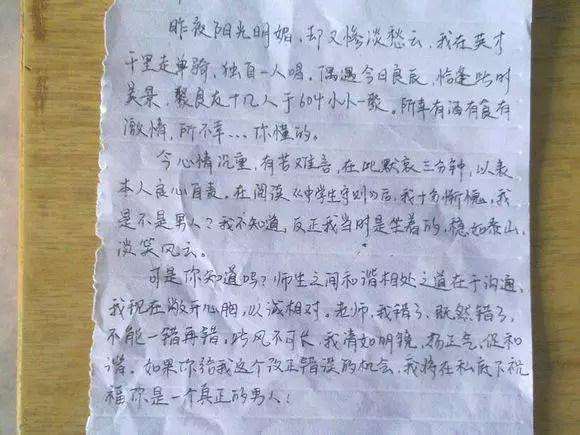 昨夜阳光明媚,却又惨淡愁云,我在英才
千里走单骑,独自一人喝。偶遇今日良辰,恰逢此时
美景,聚良友十几人于604小小一聚。所幸有酒有食有
激情,所不幸…你懂的。
今心情沉重,有苦难言,在此默哀三分钟,以表
本人良心自责。在阅读《中学生守则》后,我十分惭愧,我
是不是男人?我不知道,反正我当时是坐着的,稳如泰山,
谈笑风云。
可是你知道吗?师生之间和谐相处之道在于沟通,
我现在敞开心胸,以诚相对。老师,我错了,既然错了,
不能一错再错,此风不可长,我清如明镜,扬正气,促和
谐。如果你给我这个改正错误的机会,我将在私底下祝
福你是一个真正的男人!